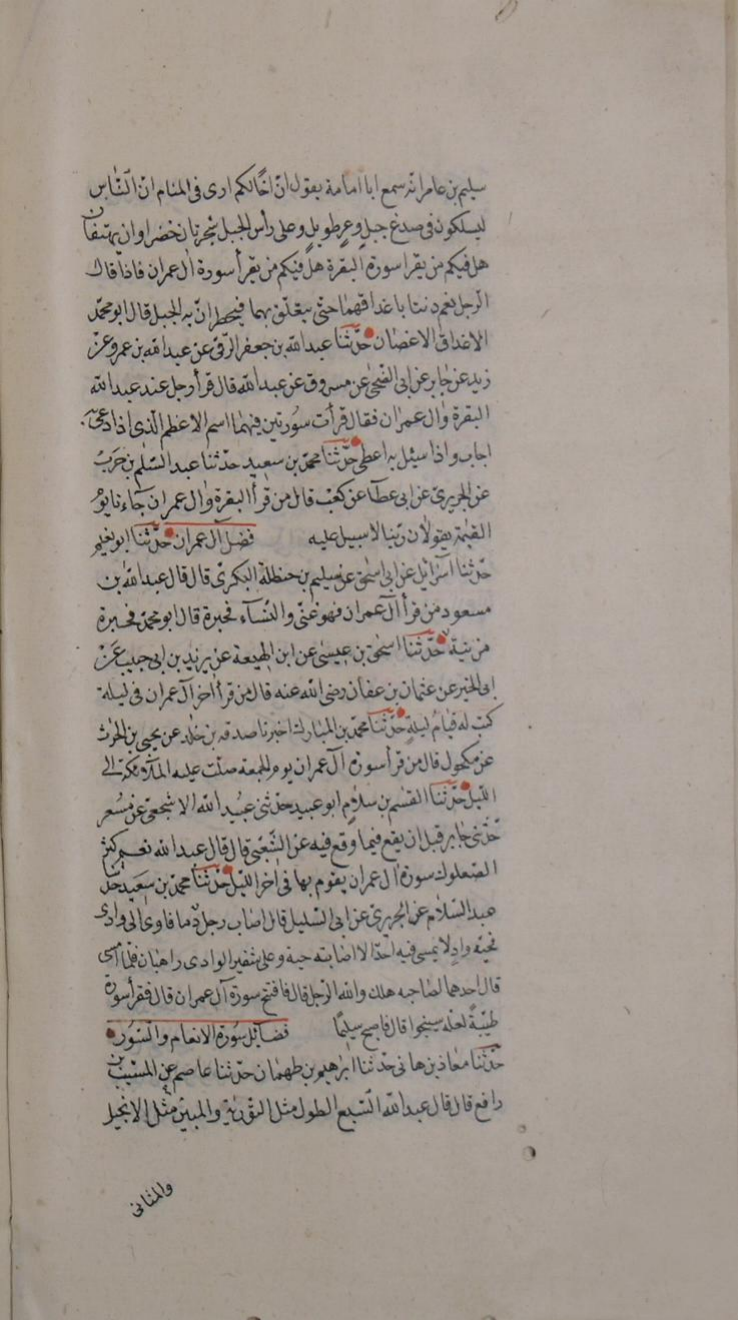 سليم بن عامر انه سمع ابا امامة يقول ان اخا لكم ارى فى المنام ان الناس
ليسلكون فى صدغ جبل وعر طويل وعلى رأس الجبل شجرتان خضراوان يهتفان
هل فيكم من يقرا سورة البقرة هل فيكم من يقرأ سورة ال عمران فاذا قال
الرجل نعم دنتا باعذاقهما حتى يتعلق بهما فيخطران به الجبل قال ابو محمد
الاعذاق الاغصان حدثنا عبد الله بن جعفر الرقى عن عبيد الله بن عمرو عن
زيد عن جابر عن ابى الضحى عن مسروق عن عبد الله قال قرأ رجل عند عبد الله
البقرة وال عمران فقال قرأت سورتين فيهما اسم الاعظم الذى اذا دعى به
اجاب واذا سئل به اعطى حدثنا محمد بن سعيد حدثنا عبد السلم بن حرب
عن الجريرى عن ابى عطا عن كعب قال من قرأ البقرة وال عمران جاءتا يوم
القيمة يقولان ربنا لا سبيل عليه فضل آل عمران حدثنا ابو نعيم
حدثنا اسرائيل عن ابى اسحق عن سليم بن حنظلة البكرى قال قال عبد الله بن
مسعود من قرأ آل عمران فهو غنى والنساء محبرة قال ابو محمد محبرة
مزينة حدثنا اسحق بن عيسى عن ابن لهيعة عن يزيد بن ابى حبيب عن
ابى الخير عن عثمان بن عفان رضى الله عنه قال من قرأ اخر آل عمران فى ليلة
كتب له قيام ليلة حدثنا محمد بن المبارك اخبرنا صدقه بن خلد عن يحيى بن الحرث
عن مكحول قال من قرأ سورة آل عمران يوم الجمعة صلت عليه الملائكة الى
الليل حدثنا القسم بن سلام ابو عبيد حدثنى عبيد الله الاشجعى عن مسعر
حدثنى جابر قبل ان يقع فيما وقع فيه عن الشعبى قال قال عبد الله نعم كنز
الصعلوك سورة ال عمران يقوم بها فى اخر الليل حدثنا محمد بن سعيد حدثنا
عبد السلام عن الجريرى عن ابى السليل قال اصاب رجل دما فاوى الى وادى
مجنة واد لا يمسى فيه احد الا اصابته حية وعلى شفير الوادى راهبان فلما امسى
قال احدهما لصاحبه هلك والله الرجل قال فافتتح سورة آل عمران قال فقرأ سورة
طيبة لعله سينجوا قال فاصبح سليما فضائل سورة الانعام والسور
حدثنا معاذ بن هانى حدثنا ابرهيم بن طهمان حدثنا عاصم عن المسيب بن
رافع قال قال عبد الله السبع الطول مثل التورية والمبين مثل الانجيل
والمثانى